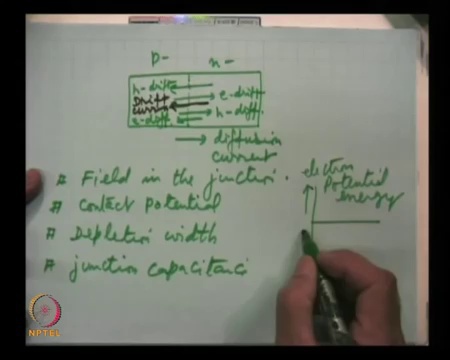 p- n-
h-drift
e-drift
Drift
current
h-diff.
e-diff.
diffusion
current
# Field in the junction.
# Contact potential
# Depletion width
# junction capacitance
electron
Potential
energy
NPTEL